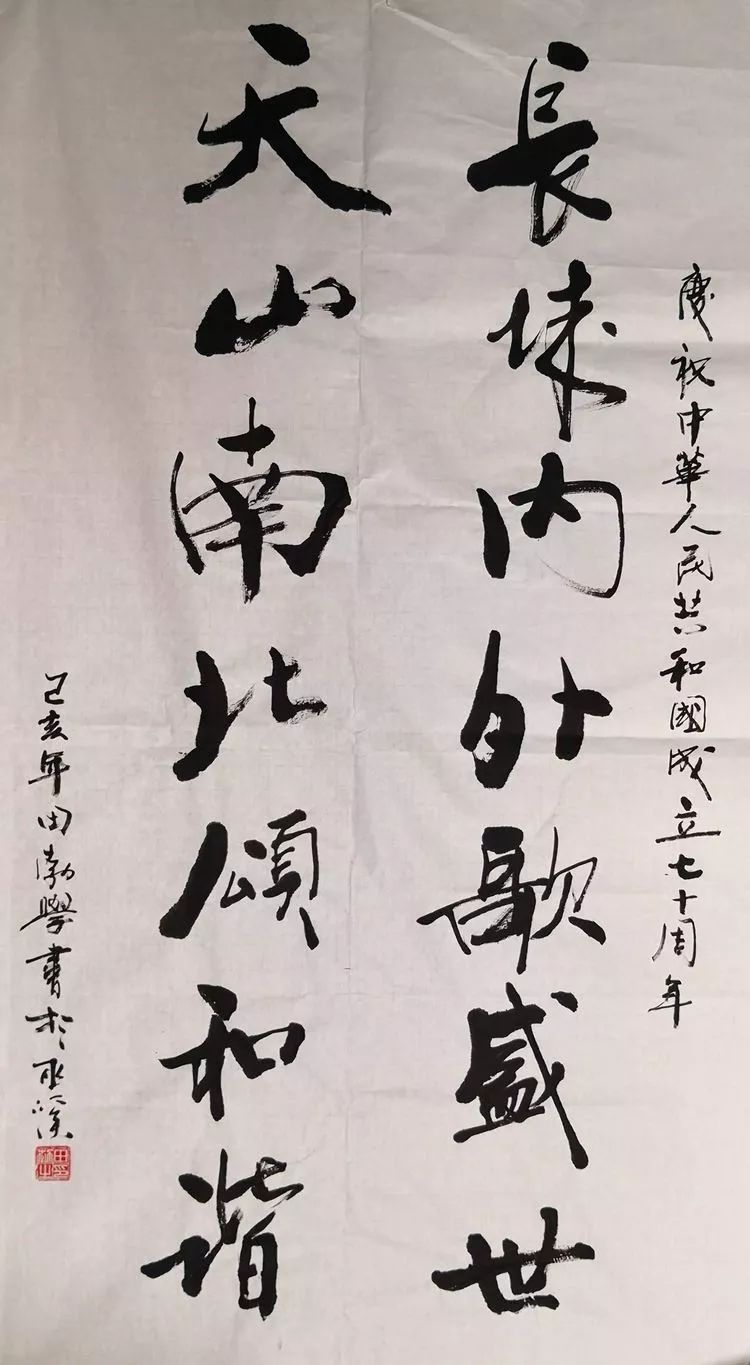 慶祝中華人民共和國成立七十周年
長城内外歌盛世
天山南北頌和諧
己亥年田勃學書於巫溪